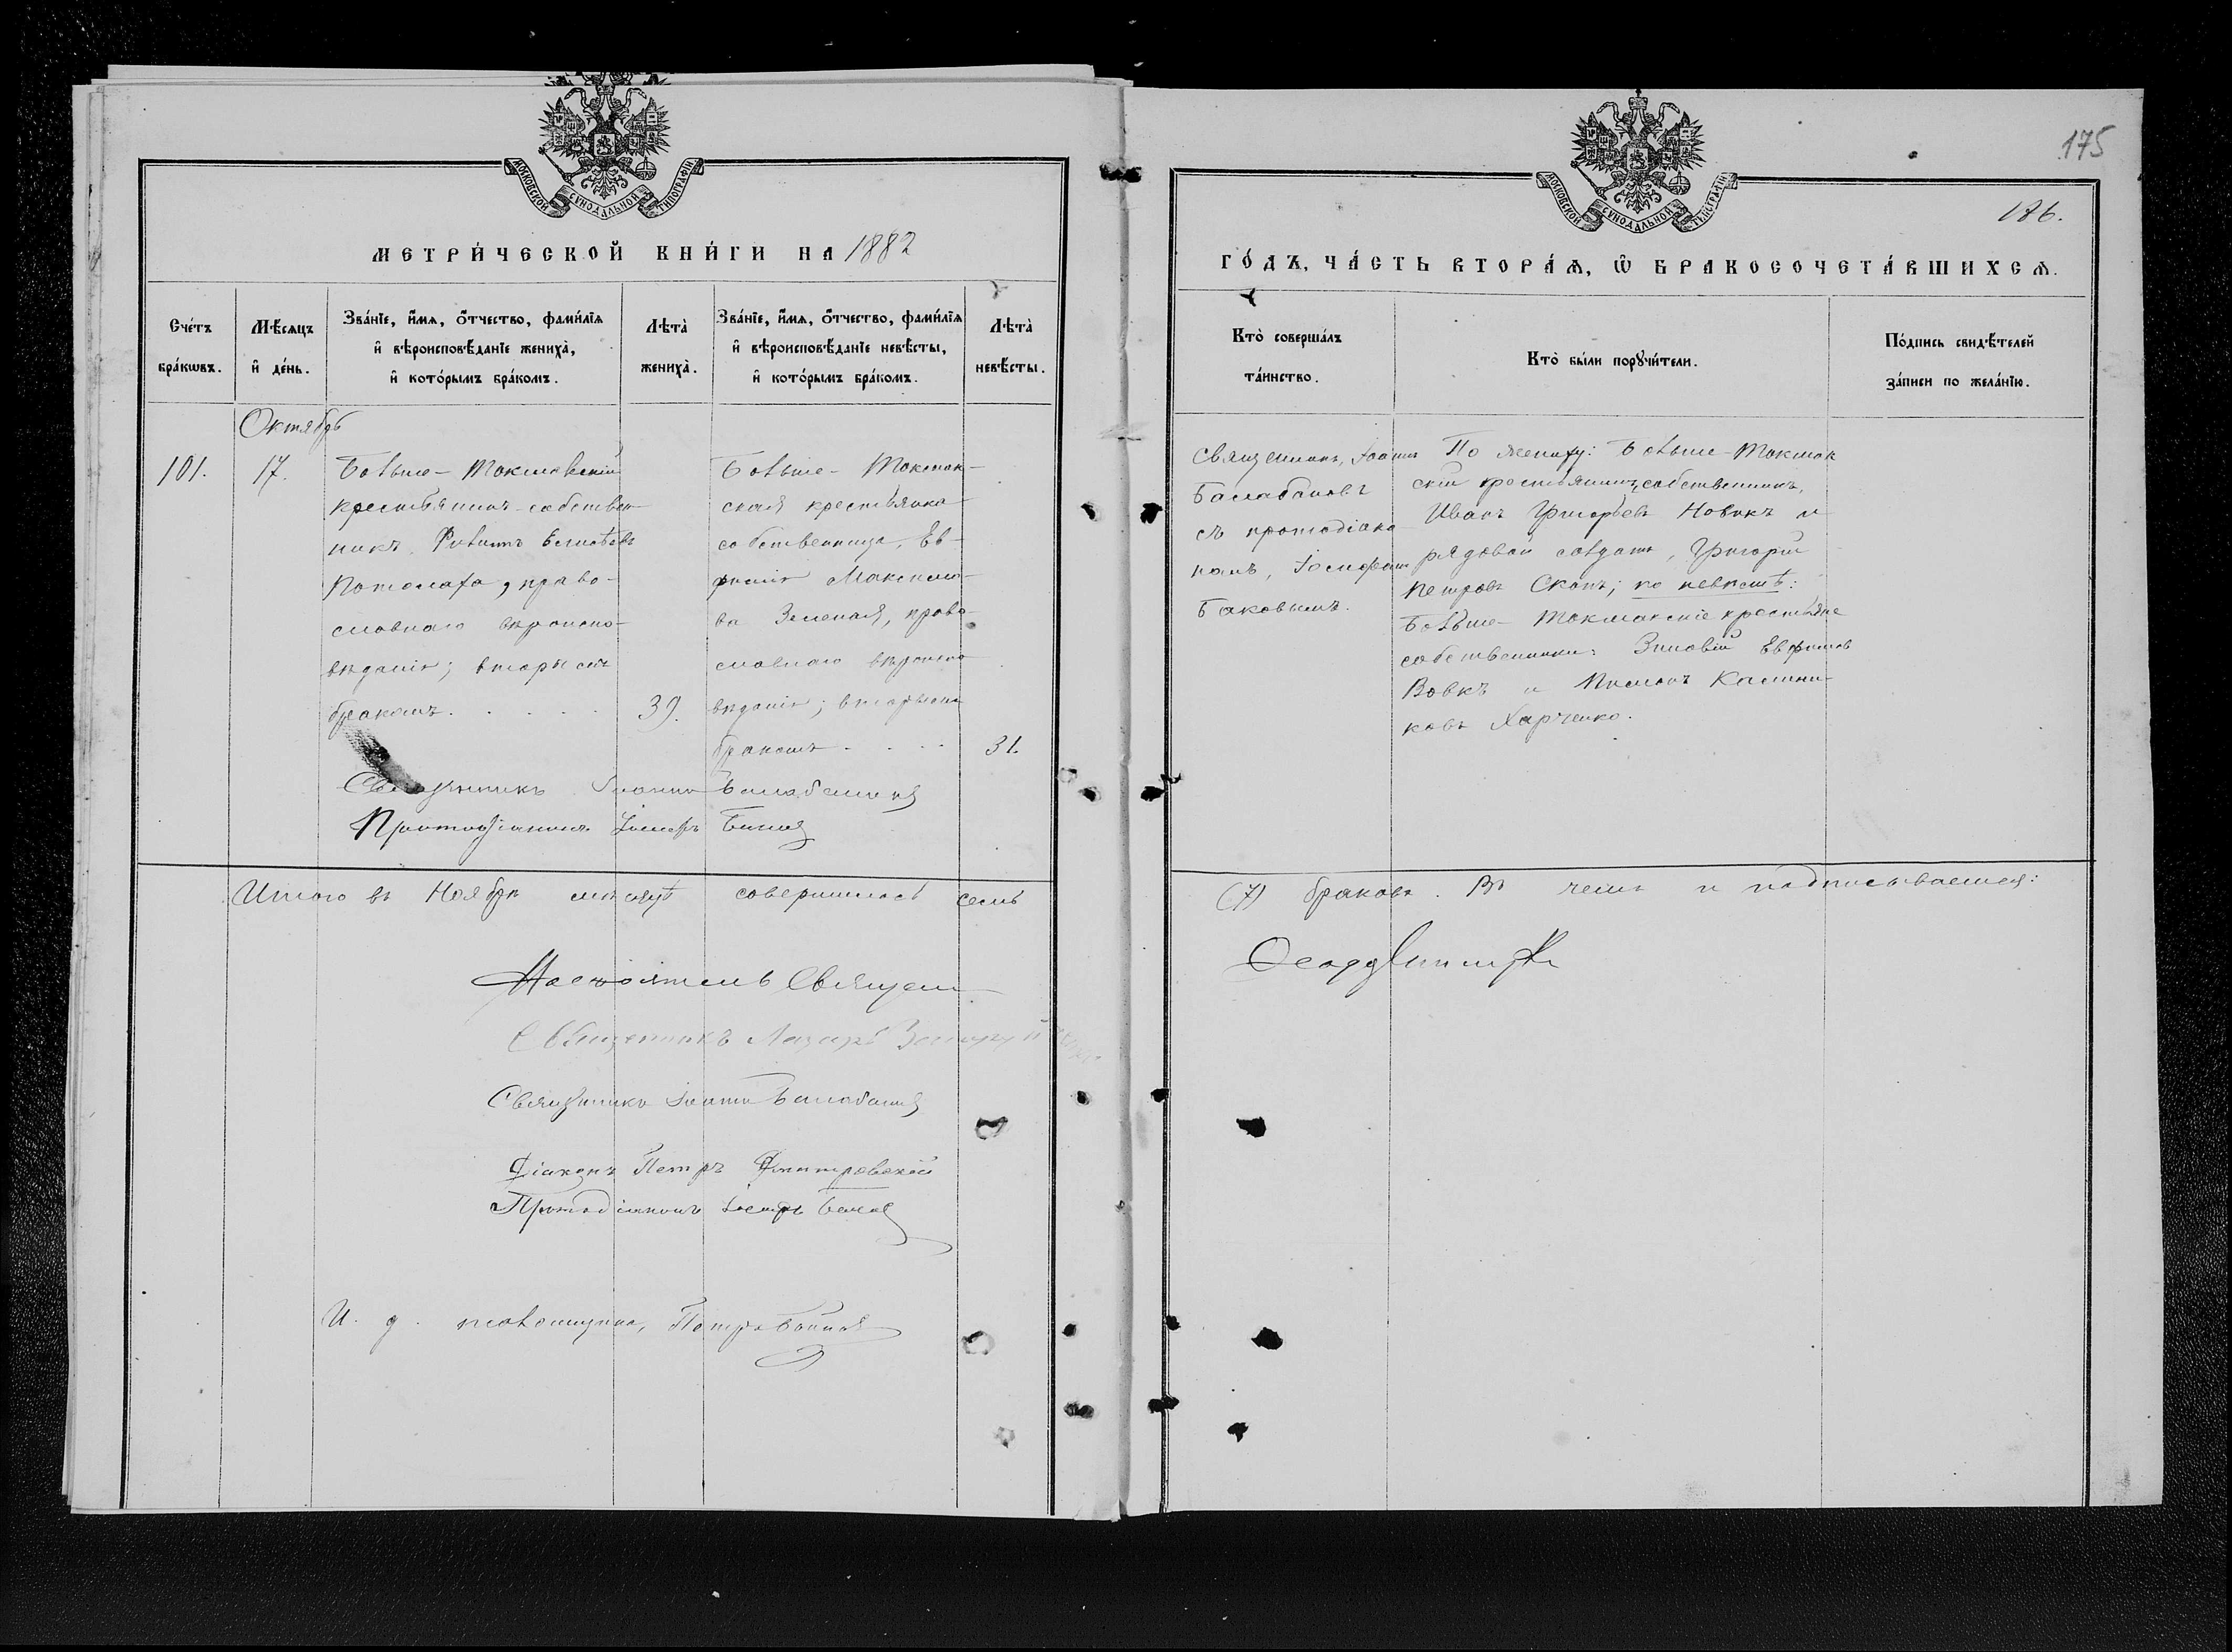 МОСКОВСКОЙ СУНОДАЛЬНОЙ ТИПОГРАФІИ
МЕТРИ́ЧЕСКОЙ КНИ́ГИ НА 1882
Сче́тъ бра́кѡвъ.
Мѣ́сяцъ и҆ де́нь.
Зва́нїе, и҆́мѧ, ѻ҆́тчество, фами́лїѧ
и҆ вѣроисповѣ́данїе жениха̀,
и҆ кото́рымъ бра́комъ.
Лѣта̀ жениха̀.
Зва́нїе, и҆́мѧ, ѻ҆́тчество, фами́лїѧ
и҆ вѣроисповѣ́данїе невѣ́сты,
и҆ кото́рымъ бра́комъ.
Лѣта̀ невѣ́сты.
Октябрь
101.
17.
Больше-Токмакскій
крестьянинъ-собствен-
никъ, Филиппъ
Потомаха, право-
славнаго вѣроиспо-
вѣданія; вторымъ
бракомъ.
39.
Больше-Токмак-
ская крестьянка
собственница, Ев-
фимія Максимо-
ва Зеленая, право-
славнаго вѣроиспо
вѣданія; вторымъ
бракомъ
31.
Священникъ Іоаннъ Балабановъ
Протодіаконъ Іосифъ Баковъ
Итого въ Ноябрѣ мѣсяцѣ совершилось семь
Настоятель Священ
Священникъ Лазарь
Священникъ Іоаннъ Балабановъ
Діаконъ Петръ Дмитровскій
Протодіаконъ Іосифъ Баковъ
И. д. псаломщика, Петръ
175
МОСКОВСКОЙ СУНОДАЛЬНОЙ ТИПОГРАФІИ
176.
ГО́ДЪ, ЧА́СТЬ ВТОРА́Ѧ, Ѽ БРАКОСОЧЕТА́ВШИХСѦ.
Кто̀ соверша́лъ та́инство.
Кто̀ бы́ли порꙋчи́тели.
По́дпись свидѣ́телей за́писи по жела́нїю.
Священникъ, Іоаннъ
Балабановъ
съ протодіако
номъ, Іосифомъ
Баковымъ.
По жениху: Больше-Токмак
скій крестьянинъ, собственникъ,
Иванъ Григорьевъ Новикъ и
рядовой солдатъ, Григорій
Петровъ Скопъ; по невѣстѣ:
Больше-Токмакскіе крестьяне
собственники: Зиновій Евфимов
Вовкъ и Пименъ Калини-
ковъ Харченко.
(7) браковъ. Въ чемъ и подписываемся: